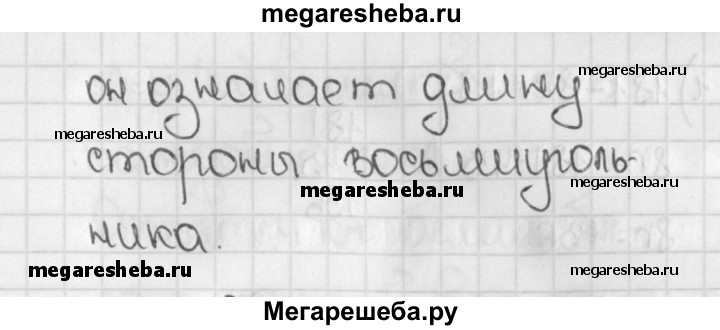 megaresheba.ru
он означает длину
megaresheba.ru
megaresheba.ru
стороны восьмиуголь-
megaresheba.ru
ника.
megaresheba.ru
megaresheba.ru
Мегарешеба.ру